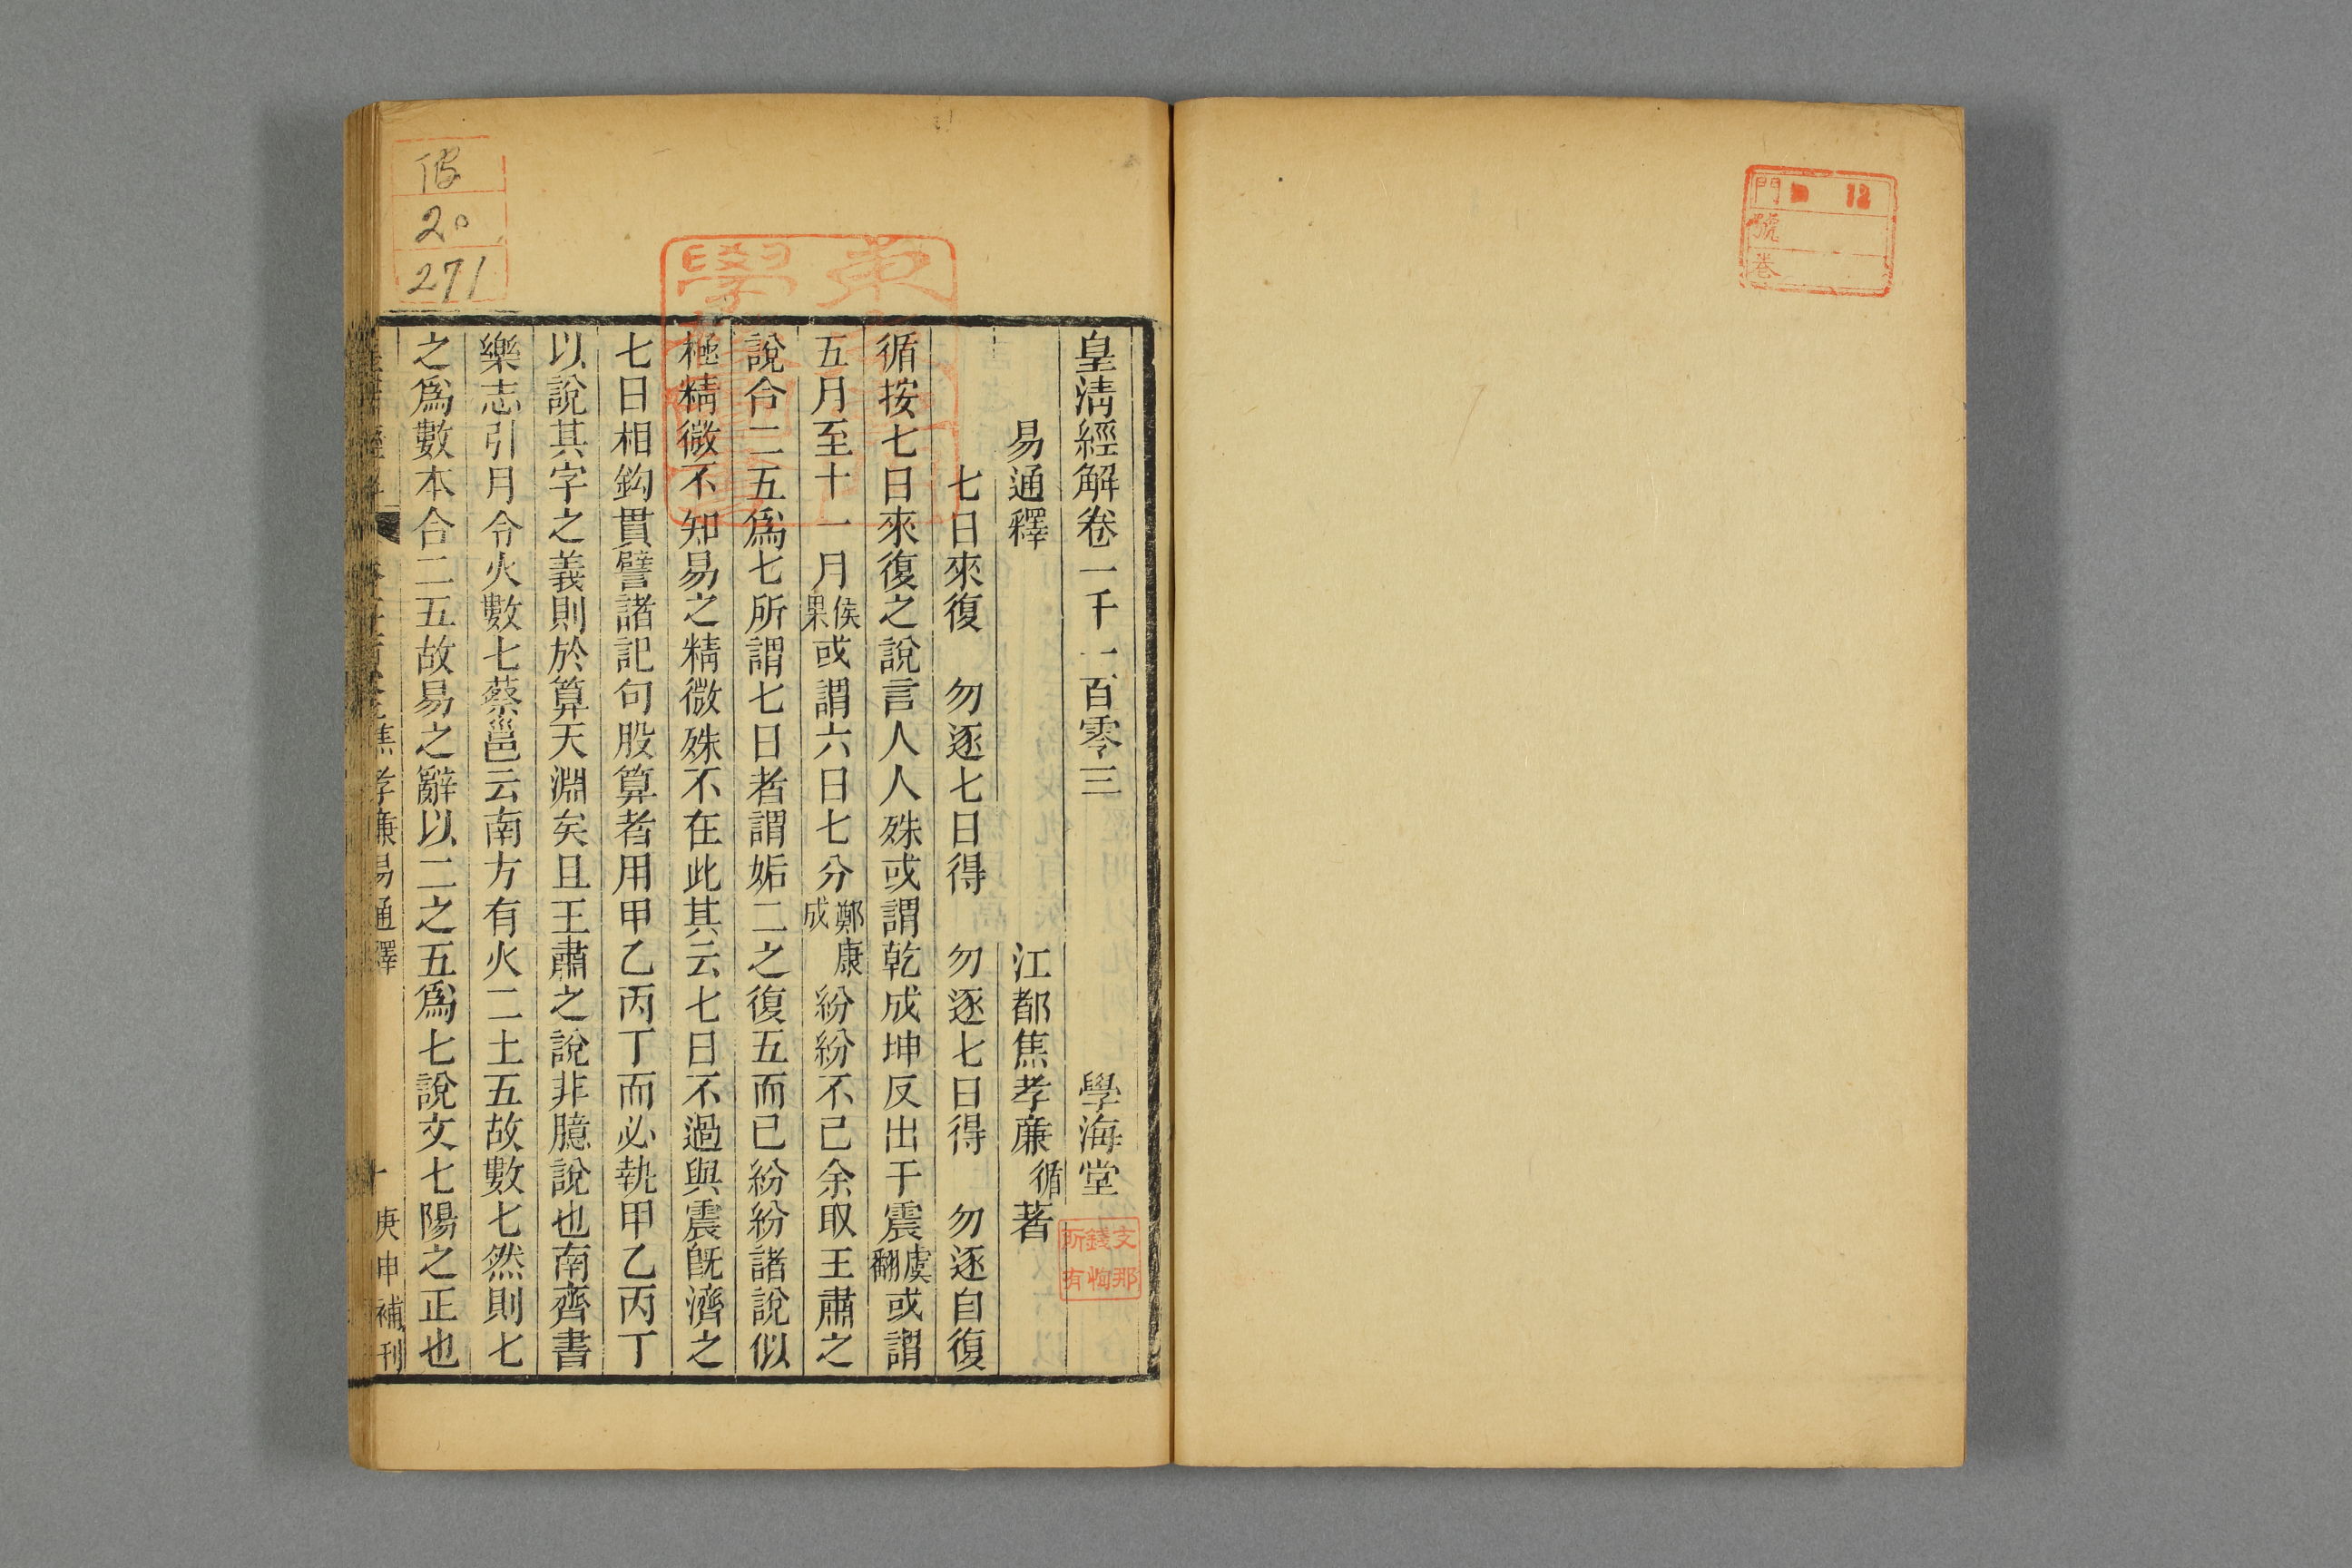 門 12
號
卷
皇淸經解卷一千一百零三 學海堂
易通釋 江都焦孝廉循著
七日來復 勿逐七日得 勿逐七日得 勿逐自復
循按七日來復之說言人人殊或謂乾成坤反出于震虞翻或謂
五月至十一月侯果或謂六日七分鄭康成紛紛不已余取王肅之
說合二五爲七所謂七日者謂姤二之復五而已紛紛諸說似
極精微不知易之精微殊不在此其云七日不過與震旣濟之
七日相鈎貫譬諸記句股算者用甲乙丙丁而必執甲乙丙丁
以說其字之義則於算天淵矣且王肅之說非臆說也南齊書
樂志引月令火數七蔡邕云南方有火二土五故數七然則七
之爲數本合二五故易之辭以二之五爲七說文七陽之正也
焦孝廉易通釋 庚申補刊
支那
錢恂
所有
20
271